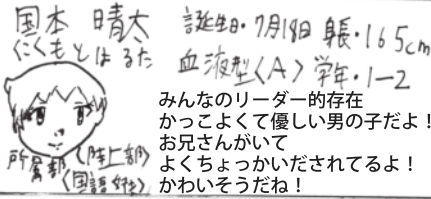 国本 晴太
くにもと はるた
誕生日・7月18日 身長・165cm
血液型〈A〉 学年・1-2
みんなのリーダー的存在
かっこよくて優しい男の子だよ！
お兄さんがいて
よくちょっかいだされてるよ！
かわいそうだね！
所属部〈陸上部〉
〈国語好き〉